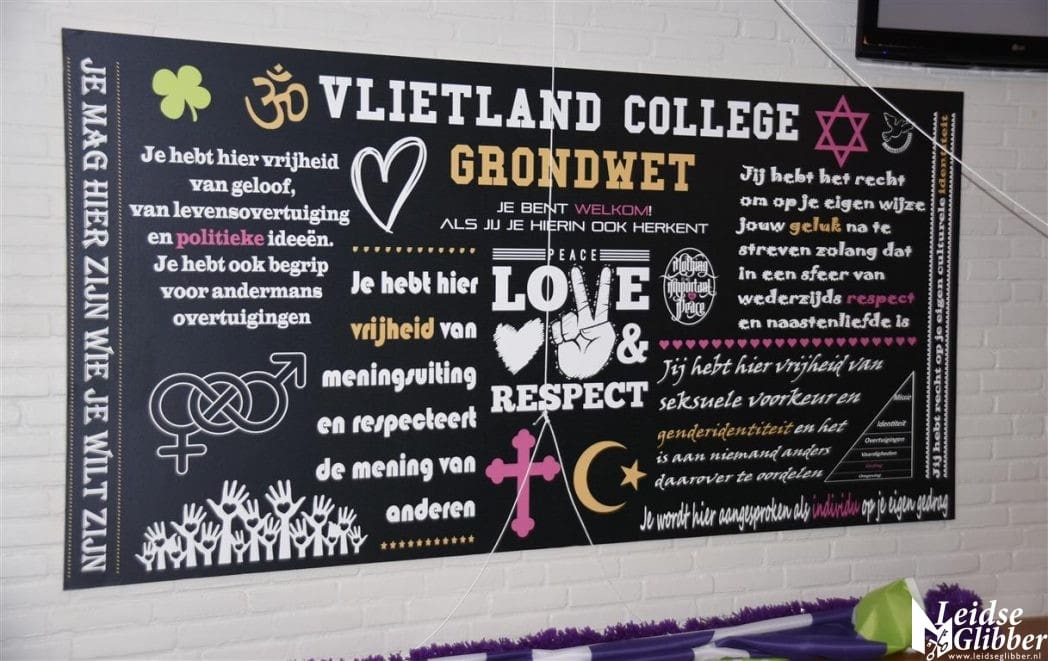 JE MAG HIER ZIJN WIE JE WILT ZIJN
VLIETLAND COLLEGE
GRONDWET
JE BENT WELKOM!
ALS JIJ JE HIERIN OOK HERKENT
Je hebt hier vrijheid
van geloof,
van levensovertuiging
en politieke ideeën.
Je hebt ook begrip
voor andermans
overtuigingen
Je hebt hier
vrijheid van
meningsuiting
en respecteert
de mening van
anderen
PEACE
LOVE
&
RESPECT
Nothing
Important
Peace
Jij hebt het recht
om op je eigen wijze
jouw geluk na te
streven zolang dat
in een sfeer van
wederzijds respect
en naastenliefde is
Jij hebt hier vrijheid van
seksuele voorkeur en
genderidentiteit en het
is aan niemand anders
daarover te oordelen
Missie
Identiteit
Overtuigingen
Vaardigheden
Gedrag
Omgeving
Je wordt hier aangesproken als individu op je eigen gedrag
Jij hebt recht op je eigen culturele identiteit
LG
Leidse
Glibber
www.leidseglibber.nl